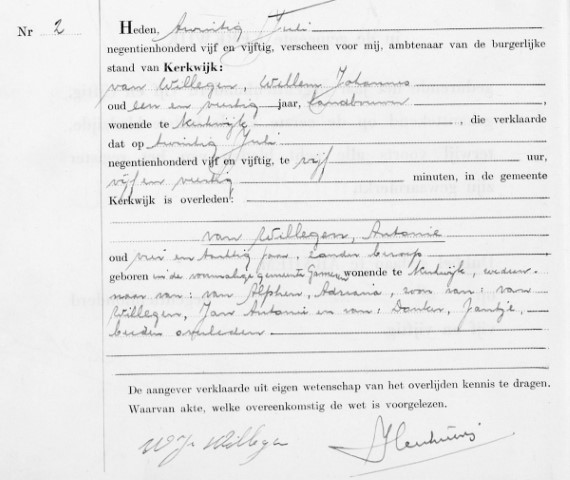 Nr 2
Heden, twintig Juli
negentienhonderd vijf en vijftig, verscheen voor mij, ambtenaar van de burgerlijke
stand van Kerkwijk:
van Willegen, Willem Johannes
oud een en veertig jaar, landbouwer,
wonende te Kerkwijk, die verklaarde
dat op twintig Juli
negentienhonderd vijf en vijftig, te vijf uur,
vijf en veertig minuten, in de gemeente
Kerkwijk is overleden:
van Willegen, Antonie
oud vier en tachtig jaar, zonder beroep
geboren in de voormalige gemeente Gameren wonende te Kerkwijk, weduw-
naar van: van Alphen, Adriana, zoon van: van
Willegen, Jan Antonie en van: Donker, Jantje,
beiden overleden
De aangever verklaarde uit eigen wetenschap van het overlijden kennis te dragen.
Waarvan akte, welke overeenkomstig de wet is voorgelezen.
W J v Willegen